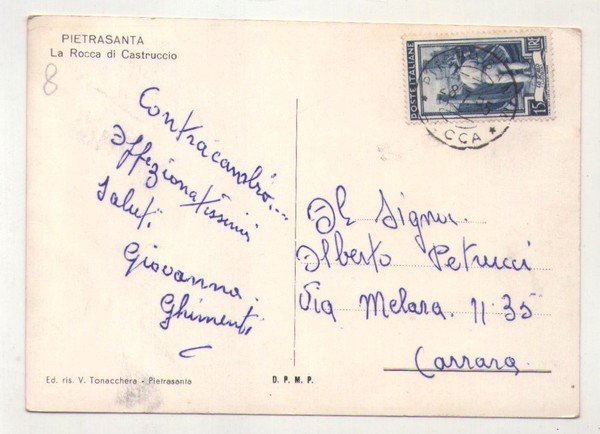 PIETRASANTA
La Rocca di Castruccio
8
POSTE ITALIANE
15
CCA *
Contracambio...
Affezionatissimi
Saluti
Giovanna
Ghimenti
Al Signor.
Alberto Petrucci
Via Melara. n 35
Carrara
Ed. ris. V. Tonacchera - Pietrasanta
D. P. M. P.